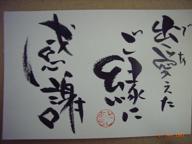 出逢えた
ご縁に
感謝